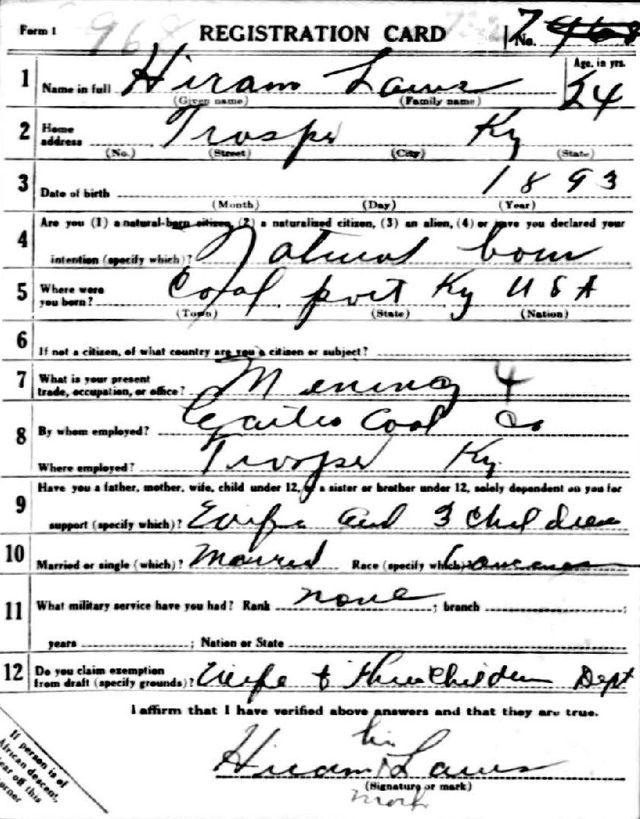 Form 1 968 REGISTRATION CARD No. 7
1 Name in full Hiram Laws Age, in yrs. 24
(Given name) (Family name)
2 Home address Trosper Ky
(No.) (Street) (City) (State)
3 Date of birth 1893
(Month) (Day) (Year)
4 Are you (1) a natural-born citizen, (2) a naturalized citizen, (3) an alien, (4) or have you declared your
intention (specify which)? Natural born
5 Where were you born? Coal port Ky U S A
(Town) (State) (Nation)
6 If not a citizen, of what country are you a citizen or subject?
7 What is your present trade, occupation, or office? Mening 4
8 By whom employed? Coal Co
Where employed? Trosper Ky.
9 Have you a father, mother, wife, child under 12, or a sister or brother under 12, solely dependent on you for
support (specify which)? Wife and 3 Children
10 Married or single (which)? Married Race (specify which)? Caucasian
11 What military service have you had? Rank none ; branch ;
years ; Nation or State
12 Do you claim exemption from draft (specify grounds)? Wife & three Children Dept
I affirm that I have verified above answers and that they are true.
his
Hiram Laws
(Signature or mark)
mark
If person is of
African descent,
tear off this
corner